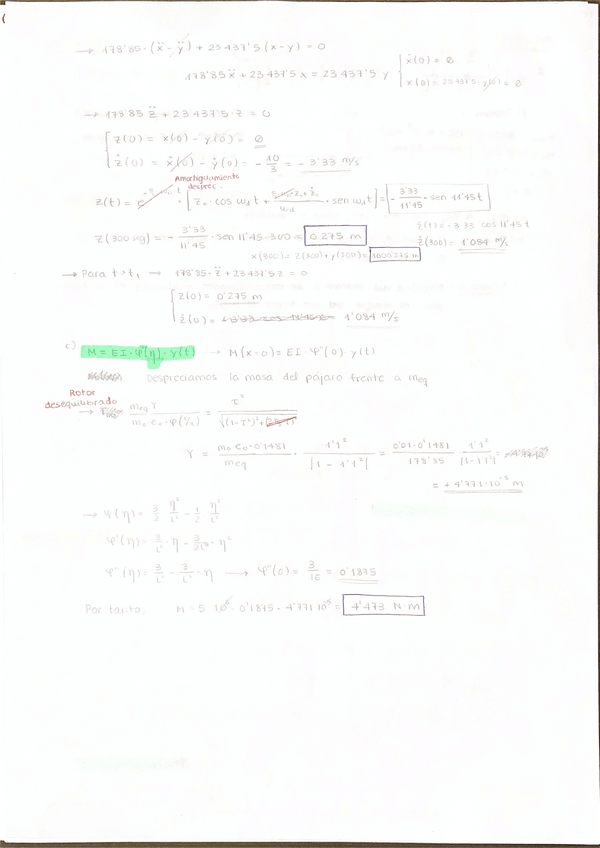 → 178'85·(ẍ-ÿ) + 23437'5 (x-y) = 0
178'85 ẍ + 23437'5 x = 23437'5 y { ẋ(0) = 0
x(0) = 23437'5·y(0) = 0
→ 178'85 z̈ + 23437'5·z = 0
{ z(0) = x(0) - y(0) = 0
ż(0) = ẋ(0) - ẏ(0) = - 10/3 = - 3'33 m/s
Amortiguamiento
desprec.
z(t) = e · [z₀·cos ω_d t + ż₀/ω_d · sen ω_d t] = - 3'33/11'45 · sen 11'45 t
z(300 sg) = - 3'33/11'45 · sen 11'45·300 = 0'275 m
ż(t) = -3'33 cos 11'45 t
ż(300) = 1'084 m/s
x(300) = z(300) + y(300) = 1000'275 m
→ Para t > t₁ → 178'85·z̈ + 23437'5 z = 0
{ z(0) = 0'275 m
ż(0) = 1'084 m/s
c) M = EI·φ''(η)·Y(t) → M(x=0) = EI·φ''(0)·Y(t)
Despreciamos la masa del pájaro frente a m_eq
Rotor
desequilibrado
→ m_eq Y / m₀ e₀·φ(L/2) = τ² / √(1-τ²)²+
Y = m₀ e₀·0'1481 / m_eq · 1'1² / |1-1'1²| = 0'01·0'1481 / 178'35 · 1'1² / |1-1'1²| =
= +4'771·10⁻⁵ m
→ φ(η) = 3/2 η²/L² - 1/2 η³/L³
φ'(η) = 3/L² · η - 3/2L³ · η²
φ''(η) = 3/L² - 3/L³ · η → φ''(0) = 3/16 = 0'1875
Por tanto, M = 5·10⁵·0'1875·4'771·10⁻⁵ = 4'473 N·m